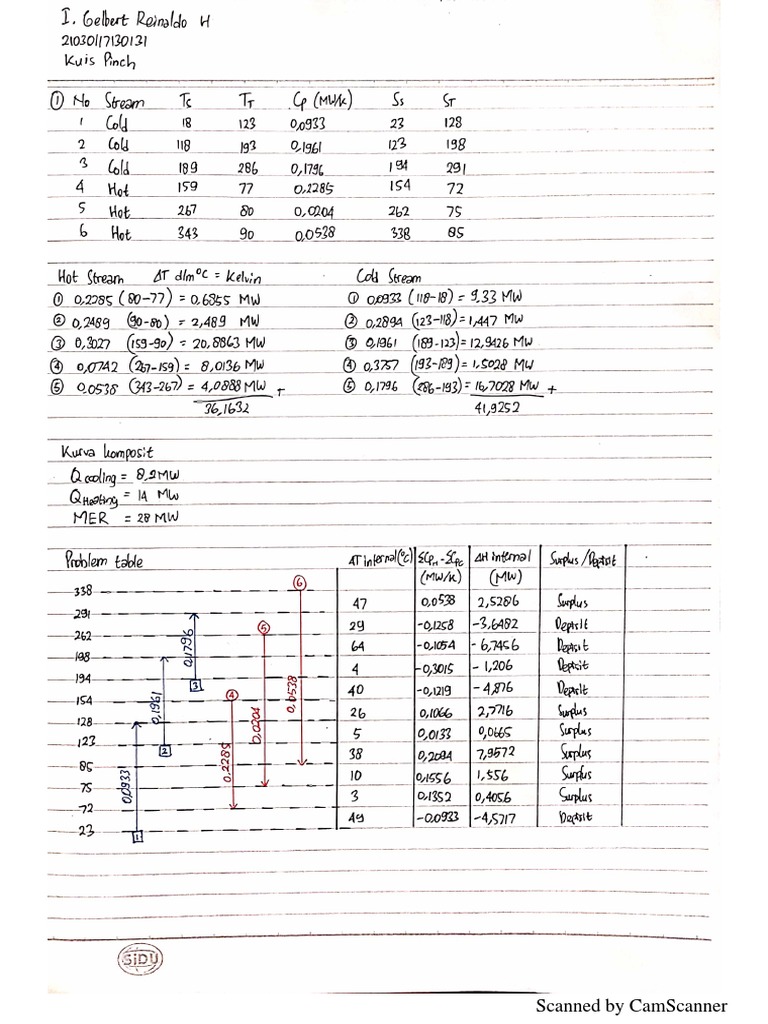 I. Gelbert Reinaldo H
21030117130131
Kuis Pinch
① No Stream Tc TT Cp (MW/k) Ss ST
1 Cold 18 123 0,0933 23 128
2 Cold 118 193 0,1961 123 198
3 Cold 189 286 0,1796 194 291
4 Hot 159 77 0,2285 154 72
5 Hot 267 80 0,0204 262 75
6 Hot 343 90 0,0538 338 85
Hot Stream ΔT dlm °C = Kelvin Cold Stream
① 0,2285 (80-77) = 0,6855 MW ① 0,0933 (118-18) = 9,33 MW
② 0,2489 (90-80) = 2,489 MW ② 0,2894 (123-118) = 1,447 MW
③ 0,3027 (159-90) = 20,8863 MW ③ 0,1961 (189-123) = 12,9426 MW
④ 0,0742 (267-159) = 8,0136 MW ④ 0,3757 (193-189) = 1,5028 MW
⑤ 0,0538 (343-267) = 4,0888 MW + ⑤ 0,1796 (286-193) = 16,7028 MW +
36,1632 41,9252
Kurva komposit
Q cooling = 8,2 MW
Q Heating = 14 MW
MER = 28 MW
Problem table ΔT internal (°C) ΣCpH - ΣCpC (MW/k) ΔH internal (MW) Surplus/Depisit
338 ⑥
47 0,0538 2,5286 Surplus
291
29 -0,1258 -3,6482 Depisit
262 ⑤
64 -0,1054 -6,7456 Depisit
198 0,1796
4 -0,3015 -1,206 Depisit
194 3
40 -0,1219 -4,876 Depisit
154 0,1961 ④ 0,0538
26 0,1066 2,7716 Surplus
128 0,0204
5 0,0133 0,0665 Surplus
123 2
38 0,2094 7,9572 Surplus
85 0,2285
10 0,1556 1,556 Surplus
75 0,0933
3 0,1352 0,4056 Surplus
72
49 -0,0933 -4,5717 Depisit
23 1
SIDU
Scanned by CamScanner